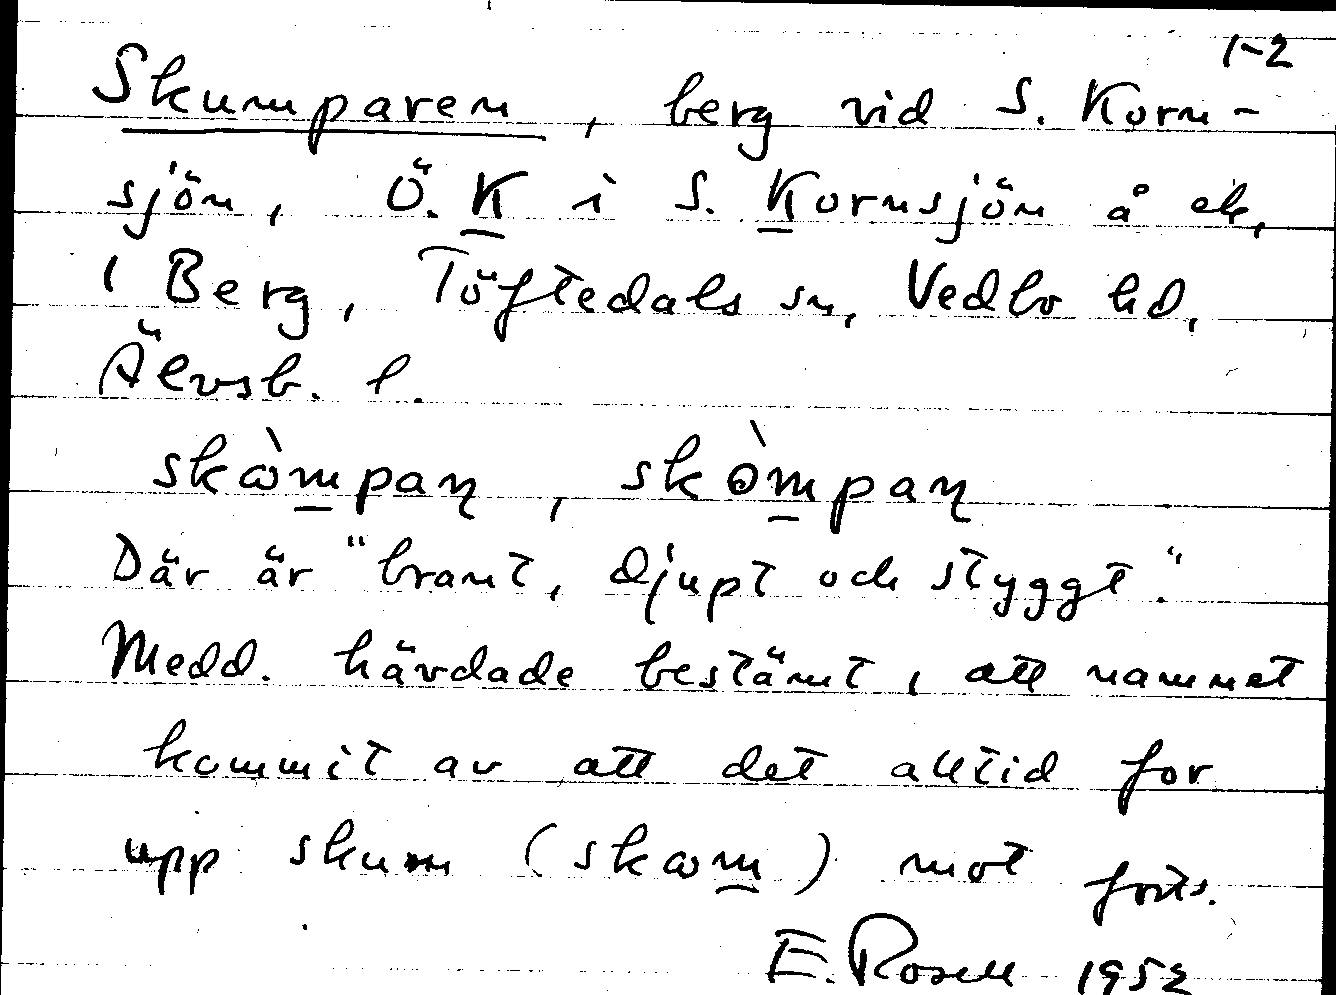 1-2
Skumparen, berg vid S. Korn-
sjön, Ö. K i S. Kornsjön å ek,
1 Berg, Töftedals sn, Vedbo hd,
Älvsb. l.
skɷ̀mpaɳ, skò̀mpaɳ
Där är "brant, djupt och styggt."
Medd. hävdade bestämt, att namnet
kommit av att det alltid for
upp skum (skɷm) mot forts.
E. Rosell 1952